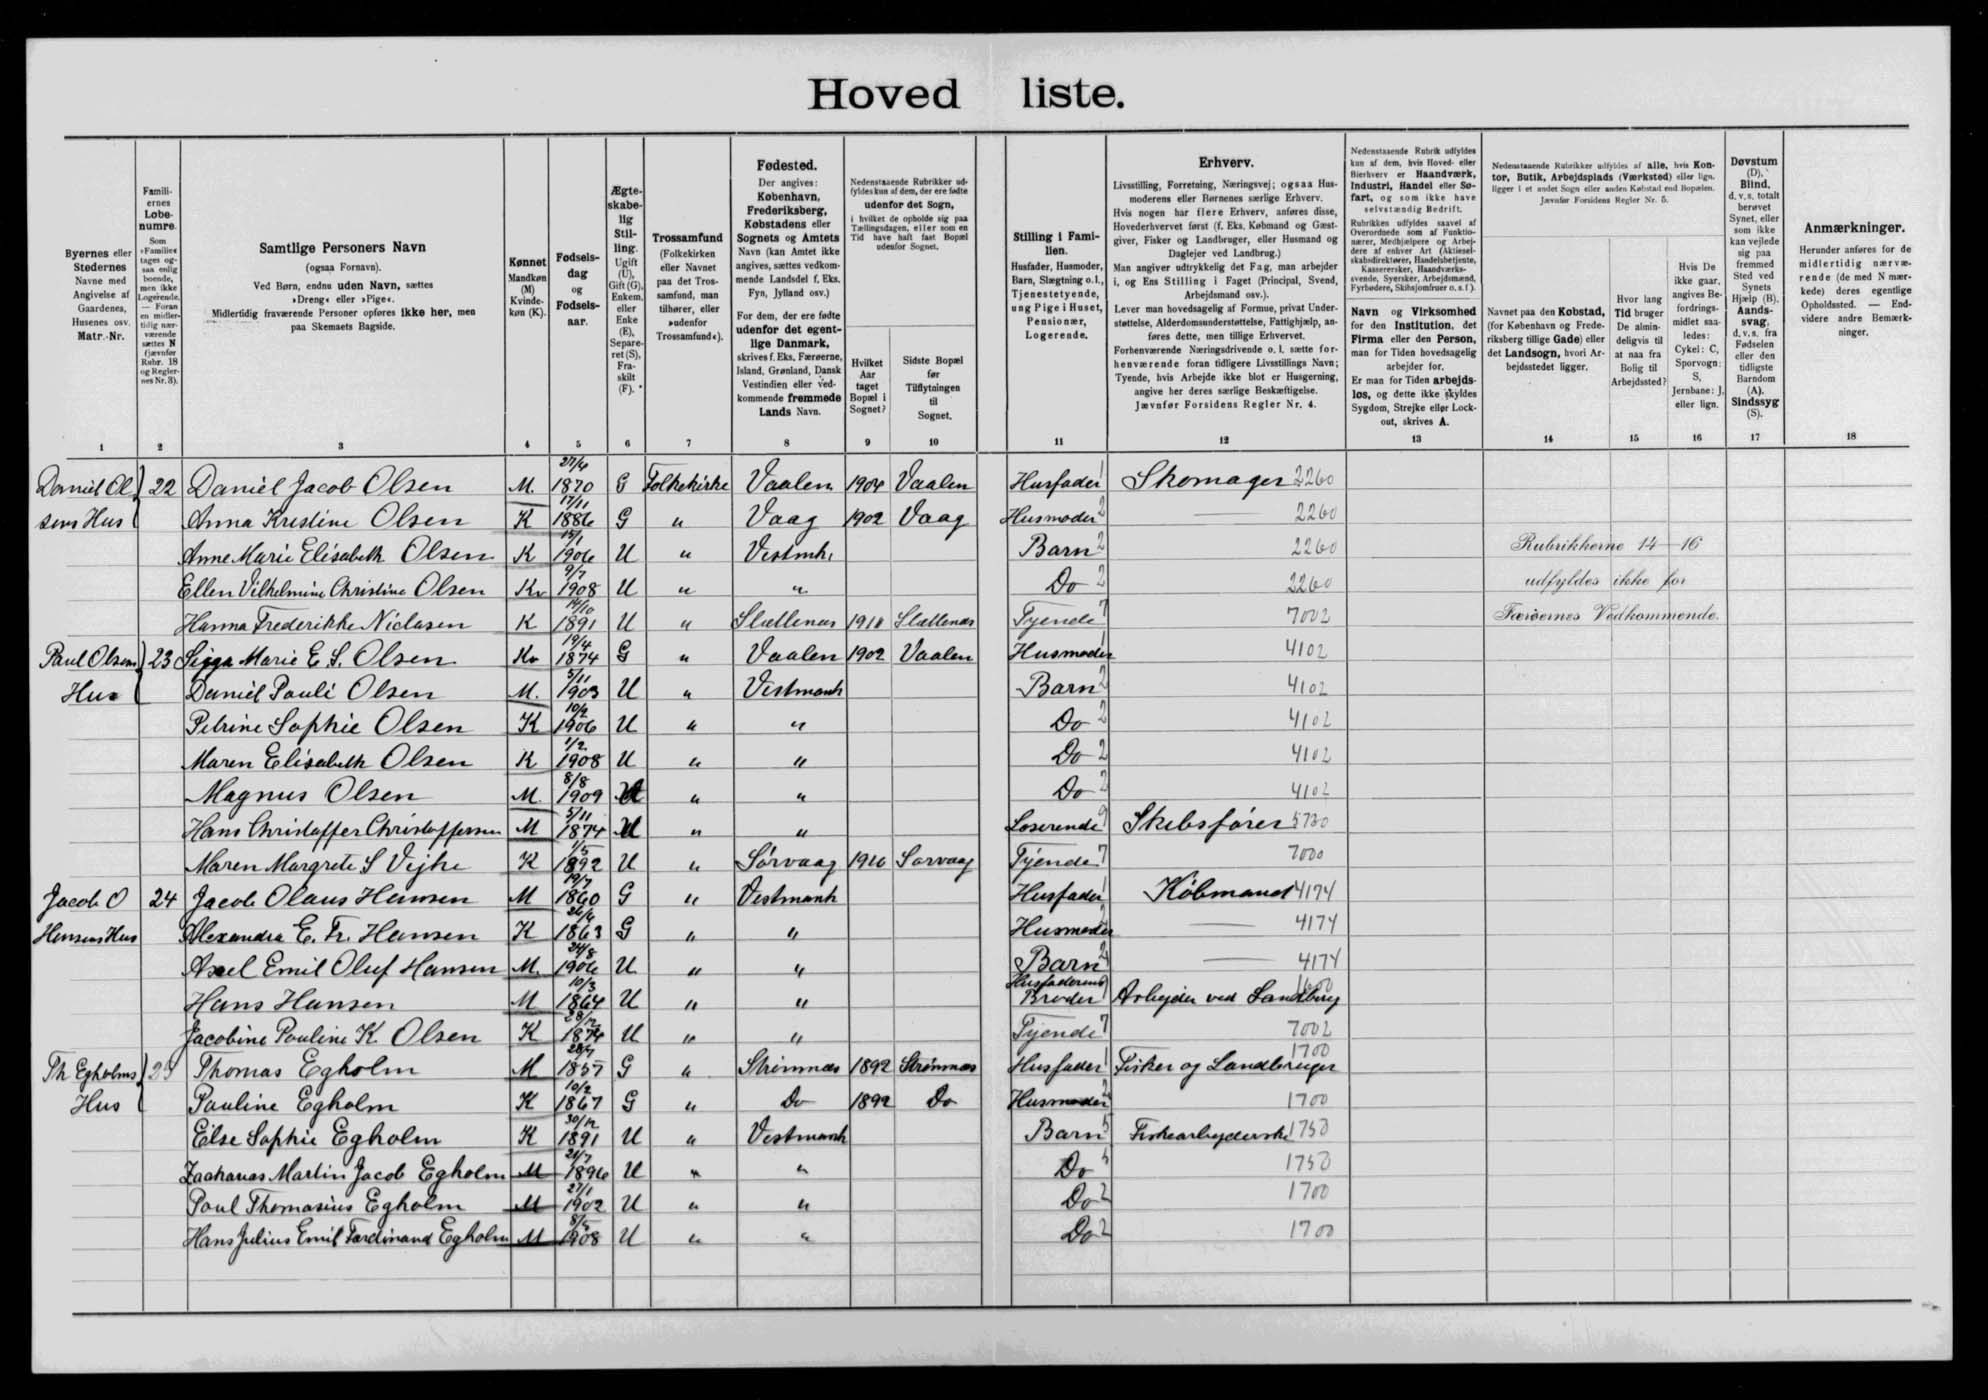 Hoved liste.
Byernes eller Stedernes Navne med Angivelse af Gaardenes, Husenes osv. Matr.-Nr.
Familiernes Løbenumre. Som »Familie« tages ogsaa enlig boende, men ikke Logerende. — Foran en midlertidig nærværende sættes N (jævnfør Rubr. 18 og Regler- nes Nr. 3).
Samtlige Personers Navn
(ogsaa Fornavn).
Ved Børn, endnu uden Navn, sættes
»Dreng« eller »Pige«.
Midlertidig fraværende Personer opføres ikke her, men
paa Skemaets Bagside.
Kønnet Mandkøn (M) Kvinde- køn (K).
Fødsels- dag og Fødsels- aar.
Ægte- skabe- lig Stil- ling. Ugift (U), Gift (G), Enkem. eller Enke (E), Separe- ret (S), Fra- skilt (F).
Trossamfund (Folkekirken eller Navnet paa det Tros- samfund, man tilhører, eller »udenfor Trossamfund«).
Fødested.
Der angives: København, Frederiksberg, Købstadens eller Sognets og Amtets Navn (kan Amtet ikke angives, sættes vedkom- mende Landsdel f. Eks. Fyn, Jylland osv.)
For dem, der ere fødte udenfor det egent- lige Danmark, skrives f. Eks. Færøerne, Island, Grønland, Dansk Vestindien eller ved- kommende fremmede Lands Navn.
Nedenstaaende Rubrikker ud- fyldes kun af dem, der ere fødte udenfor det Sogn, i hvilket de opholde sig paa Tællingsdagen, eller som en Tid have haft fast Bopæl udenfor Sognet.
Hvilket Aar taget Bopæl i Sognet?
Sidste Bopæl før Tilflytningen til Sognet.
Stilling i Fami- lien. Husfader, Husmoder, Barn, Slægtning o.l., Tjenestetyende, ung Pige i Huset, Pensionær, Logerende.
Erhverv.
Livsstilling, Forretning, Næringsvej; ogsaa Hus- moderens eller Børnenes særlige Erhverv.
Hvis nogen har flere Erhverv, anføres disse, Hovederhvervet først (f. Eks. Købmand og Gæst- giver, Fisker og Landbruger, eller Husmand og Daglejer ved Landbrug.)
Man angiver udtrykkelig det Fag, man arbejder i, og Ens Stilling i Faget (Principal, Svend, Arbejdsmand osv.).
Lever man hovedsagelig af Formue, privat Under- støttelse, Alderdomsunderstøttelse, Fattighjælp, an- føres dette, men tillige Erhvervet.
Forhenværende Næringsdrivende o. l. sætte for- henværende foran tidligere Livsstillings Navn; Tyende, hvis Arbejde ikke blot er Husgerning, angive her deres særlige Beskæftigelse.
Jævnfør Forsidens Regler Nr. 4.
Nedenstaaende Rubrik udfyldes kun af dem, hvis Hoved- eller Bierhverv er Haandværk, Industri, Handel eller Sø- fart, og som ikke have selvstændig Bedrift.
Rubrikken udfyldes saavel af Overordnede som af Funktio- nærer, Medhjælpere og Arbej- dere af enhver Art (Aktiesel- skabsdirektører, Handelsbetjente, Kasserersker, Haandværks- svende, Syersker, Arbejdsmænd, Fyrbødere, Skibsjomfruer o. s. f.).
Navn og Virksomhed for den Institution, det Firma eller den Person, man for Tiden hovedsagelig arbejder for.
Er man for Tiden arbejds- løs, og dette ikke skyldes Sygdom, Strejke eller Lock- out, skrives A.
Nedenstaaende Rubrikker udfyldes af alle, hvis Kon- tor, Butik, Arbejdsplads (Værksted) eller lign. ligger i et andet Sogn eller anden Købstad end Bopælen. Jævnfør Forsidens Regler Nr. 5.
Navnet paa den Købstad, (for København og Frede- riksberg tillige Gade) eller det Landsogn, hvori Ar- bejdsstedet ligger.
Hvor lang Tid bruger De almin- deligvis til at naa fra Bolig til Arbejdssted?
Hvis De ikke gaar, angives Be- fordrings- midlet saa- ledes: Cykel: C, Sporvogn: S, Jernbane: J, eller lign.
Døvstum (D), Blind, d. v. s. totalt berøvet Synet, eller som ikke kan vejlede sig paa fremmed Sted ved Synets Hjælp (B), Aands- svag, d. v. s. fra Fødselen eller den tidligste Barndom (A), Sindssyg (S).
Anmærkninger. Herunder anføres for de midlertidig nærvæ- rende (de med N mær- kede) deres egentlige Opholdssted. — End- videre andre Bemærk- ninger.
1 2 3 4 5 6 7 8 9 10 11 12 13 14 15 16 17 18
Daniel Ol 22 Daniel Jacob Olsen M. 27/4 1870 G Folkekirke Vaalen 1904 Vaalen Husfader 1 Skomager 2260
sens Hus Anna Kristine Olsen K 17/11 1886 G " Vaag 1902 Vaag Husmoder 2 — 2260
Anne Marie Elisabeth Olsen K 15/1 1906 U " Vestmh. Barn 2 2260 Rubrikkerne 14—16
Ellen Vilhelmine Christine Olsen Kv 9/7 1908 U " " Do 2 2260 udfyldes ikke for
Hanna Frederikke Niclasen K 14/10 1891 U " Slættenæs 1910 Slættenæs Tyende 7 7002 Færøernes Vedkommende.
Paul Olsens 23 Sigga Marie E. S. Olsen Kv 19/4 1874 G " Vaalen 1902 Vaalen Husmoder 1 4102
Hus Daniel Pauli Olsen M. 5/11 1903 U " Vestmanh Barn 2 4102
Petrine Sophie Olsen K 10/2 1906 U " " Do 2 4102
Maren Elisabeth Olsen K 1/2 1908 U " " Do 2 4102
Magnus Olsen M. 8/8 1909 U " " Do 2 4102
Hans Christoffer Christoffersen M 5/11 1874 U " " Loserende 9 Skibsfører 5730
Maren Margrete S Vejhe K 1/5 1892 U " Sørvaag 1910 Sørvaag Tjende 7 7000
Jacob O 24 Jacob Olaus Hansen M 19/7 1860 G " Vestmanh Husfader 1 Købmand 4174
Hansens Hus Alexandra E. Fr. Hansen K 26/4 1863 G " " Husmoder 2 — 4174
Axel Emil Oluf Hansen M. 24/8 1906 U " " Barn 2 — 4174
Hans Hansen M 10/3 1864 U " " Husfaderens Broder Arbejder ved Landbrug
Jacobine Pauline K. Olsen K 28/12 1874 U " " Tjende 7 7002
Th Egholms 25 Thomas Egholm M 28/7 1857 G " Strømnæs 1892 Strømnæs Husfader 1 Fisker og Landbruger 1700
Hus Pauline Egholm K 10/2 1867 G " Do 1892 Do Husmoder 2 1700
Else Sophie Egholm K 30/12 1891 U " Vestmanh Barn 5 Fiskearbejderske 1750
Zacharias Martin Jacob Egholm M 21/7 1896 U " " Do 5 1750
Poul Thomasius Egholm M 27/1 1902 U " " Do 2 1700
Hans Julius Emil Ferdinand Egholm M 8/5 1908 U " " Do 2 1700